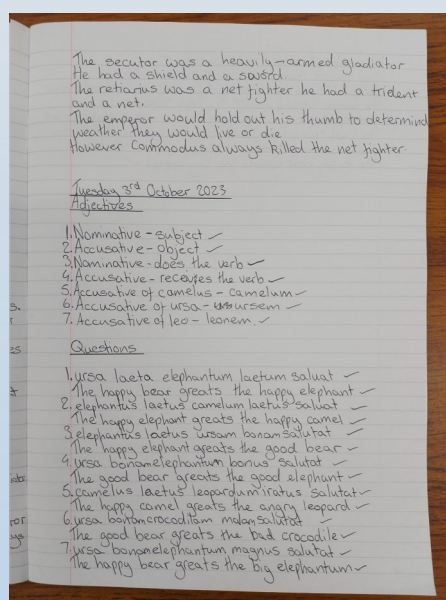 The secutor was a heavily-armed gladiator
He had a shield and a sword.
The retiarius was a net fighter he had a trident
and a net.
The emperor would hold out his thumb to determind
weather they would live or die
However Commodus always killed the net fighter.
Tuesday 3rd October 2023
Adjectives
1. Nominative - subject ✓
2. Accusative - object ✓
3. Nominative - does the verb ✓
4. Accusative - receives the verb ✓
5. Accusative of camelus - camelum ✓
6. Accusative of ursa - ursem ✓
7. Accusative of leo - leonem. ✓
Questions
1. ursa laeta elephantum laetum saluat ✓
The happy bear greats the happy elephant ✓
2. elephantus laetus camelum laetus saluat ✓
The happy elephant greats the happy camel ✓
3. elephantus laetus ursam bonam salutat ✓
The happy elephant greats the good bear ✓
4. ursa bonam elephantum bonus salutat ✓
The good bear greats the good elephant ✓
5. camelus laetus leopardum iratus salutat ✓
The happy camel greats the angry leopard ✓
6. ursa bonam crocodilam malam salutat ✓
The good bear greats the bad crocodile ✓
7. ursa bonam elephantum magnus salutat ✓
The happy bear greats the big elephantum ✓